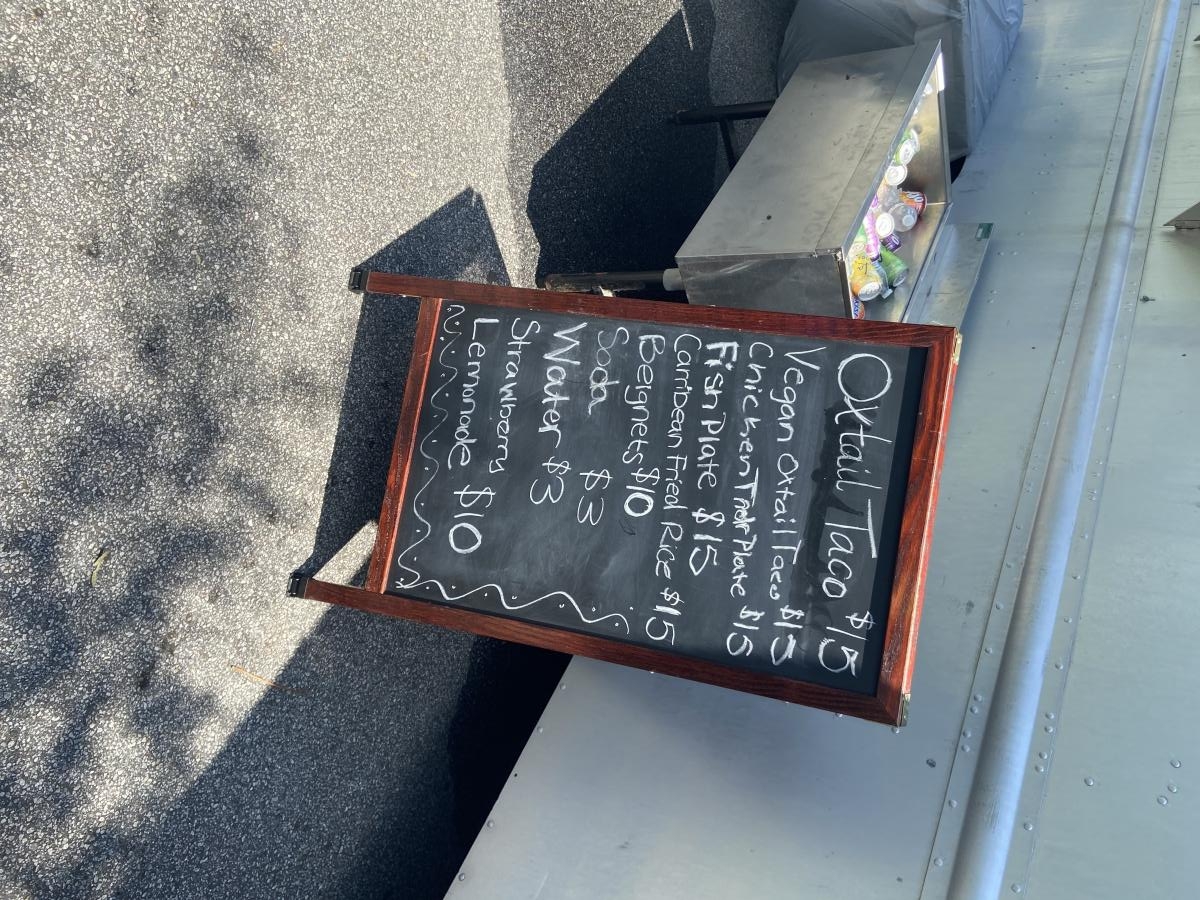 Oxtail Taco $15
Vegan Oxtail Taco $15
Chicken Plate $15
Fish Plate $15
Carribean Fried Rice $15
Beignets $10
Soda $3
Water $3
Strawberry
Lemonade $10